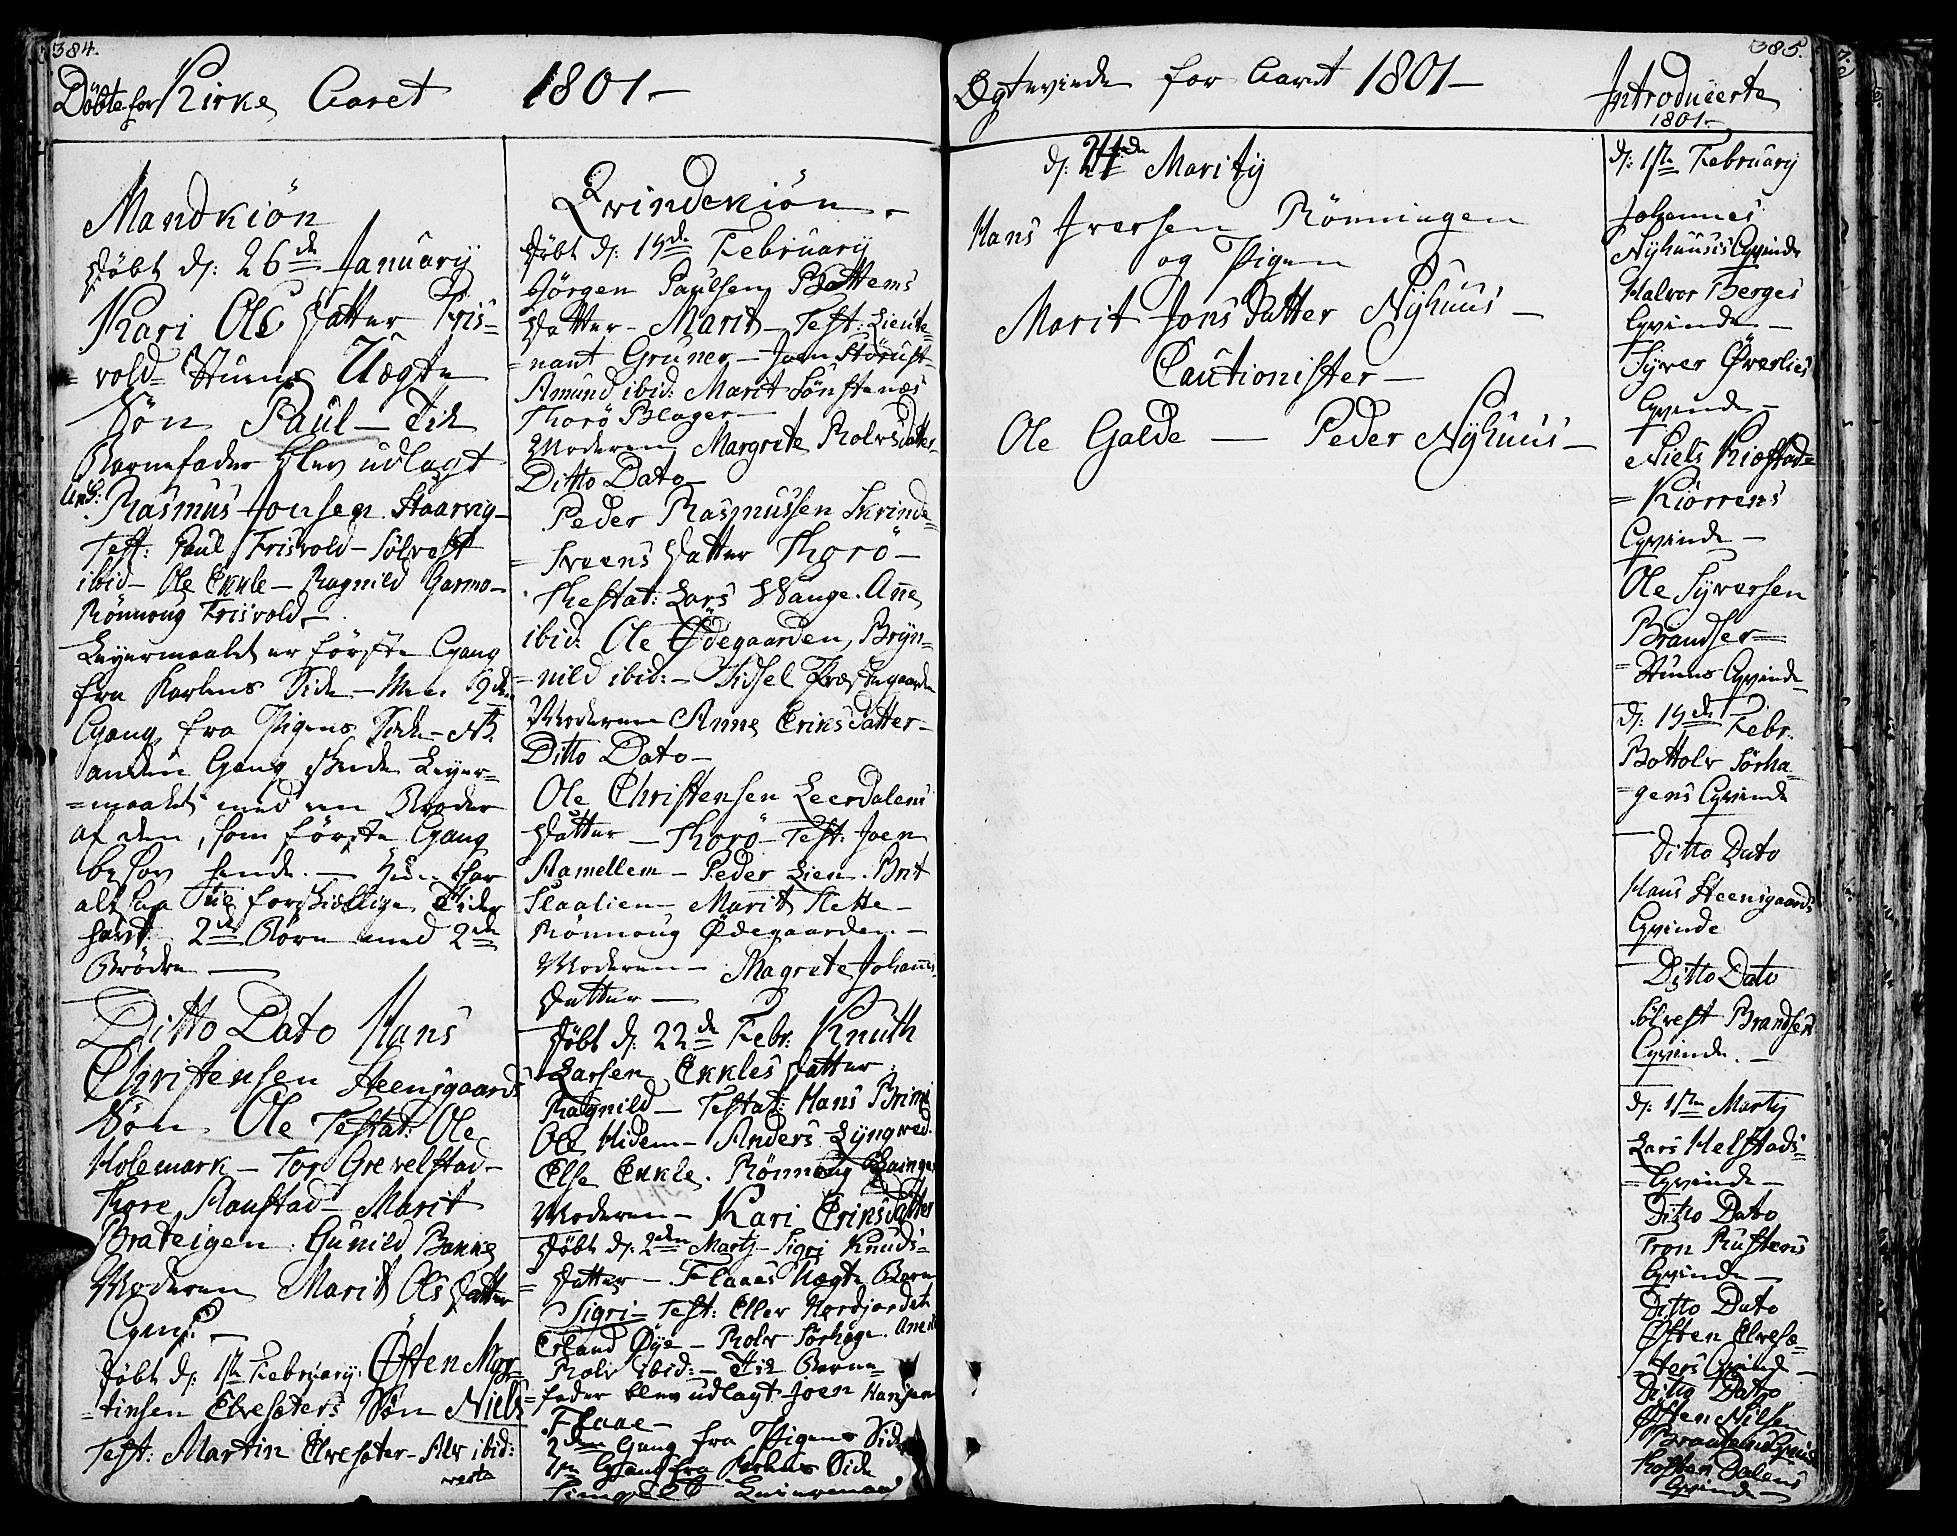 384.
Döbte for Kirke Aaret 1801 -
Mandkiön
Döbt d: 26de January
Kari Ols Datter Fris-
=vold= Stuens Uægte
Sön Paul - Til
Barnefader blev udlagt
Rasmus Jonsen Staarvig -
Test: Paul Frisvold - Sölvest
ibid - Ole Ekkle - Ragnild Garmo -
Rönnoug Frisvold -
Leyermaalet er förste Gang
fra Karlens Side - Men 2den
Gang fra Pigens Side - NB.
anden Gang skede Leyer-
=maalet med en Broder
af den, som förste Gang
besov hende. - Hun har
altsaa Tve forskiællige Tider
havt 2de Börn med 2de
Brödre -
Ditto Dato Hans
Christensen Steensgaards
Sön Ole Testat: Ole
Holemark - Tor Grevelstad -
Thore Raustad - Marit
Brateigen. Gunild Bakke
Moderen Marit Ols Datter
Döbt d: 1ste February: Østen Mor-
=tinsen Elvesæters Sön Niels
Test: Martin Elvesæter - Alv ibid:
Qvindekiön -
Döbt d: 15de February
Jörgen Paulsen Blettems
Datter - Marit - Test: Lieute-
=nant Gruner - Joen Störust -
Amund ibid: Marit Sönstenæs
Thorö Blager -
Moderen Margrete Rolvsdatter -
Ditto Dato -
Peder Rasmussen Skrinde-
=sveens Datter Thorö -
Thestat: Lars Wange. Añe
ibid: Ole Ødegaarden, Bryn-
=nild ibid: - Sidsel Præstegaarden
Moderen Anne Eriks Datter -
Ditto Dato -
Ole Christensen Leerdalens
Datter - Thorö - Test: Joen
Aamellem - Peder Lien. Brit
Slaalien - Marit Slette -
Rönnoug Ødegaarden. -
Moderen - Magrete Johannes
Datter -
Döbt d: 22de Febr: Knuth
Larsen Ekkles Datter
Ragnild - Testat: Hans Brimi
Ole Hidem - Anders Lyngved.
Else Ekkle. Rönnoug
Moderen - Kari Eriks Datter
Döbt d: 2den Marty - Sigri Knuds-
=Datter - Flaaes Uægte Barn
Sigri - Test: Eller Nordjordet
Erland Øye - Rolv Sörhage.
Rolv ibid: - Til Barne-
=fader blev udlagt Joen Hansen
Flaae -
2den Gang fra Pigens Side
1ste Gang fra Karlens Side
385.
Ægteviede for Aaret 1801 -
d: 24de Marity
Hans Iversen Rönningen
og Pigen
Marit Jonsdatter Nyhuus -
Cautionister -
Ole Galde - Peder Nyhuus -
Introducerte
1801 -
d: 1ste February
Johannes
Nyhuusis Qvinde
Halvor Berges
Qvinde -
Syver Øverlies
Qvinde -
Niels Kiestad=
=Kiörrens
Qvinde -
Ole Syversen
Brandser -
=Stuens Qvinde
d: 15de Febr.
Bottolv Sörha-
=gens Qvinde
Ditto Dato
Hans Steensgaards
Qvinde
Ditto Dato
Sölvest Brandsers
Qvinde. -
d: 1ste Marty
Lars Helstads-
=Qvinde -
Ditto Dato
Tron Rustens
Qvinde -
Ditto Dato
Østen Elvesæ-
=ters Qvinde -
Ditto Dato
Østen Nilsen
Dalens
Qvinde -